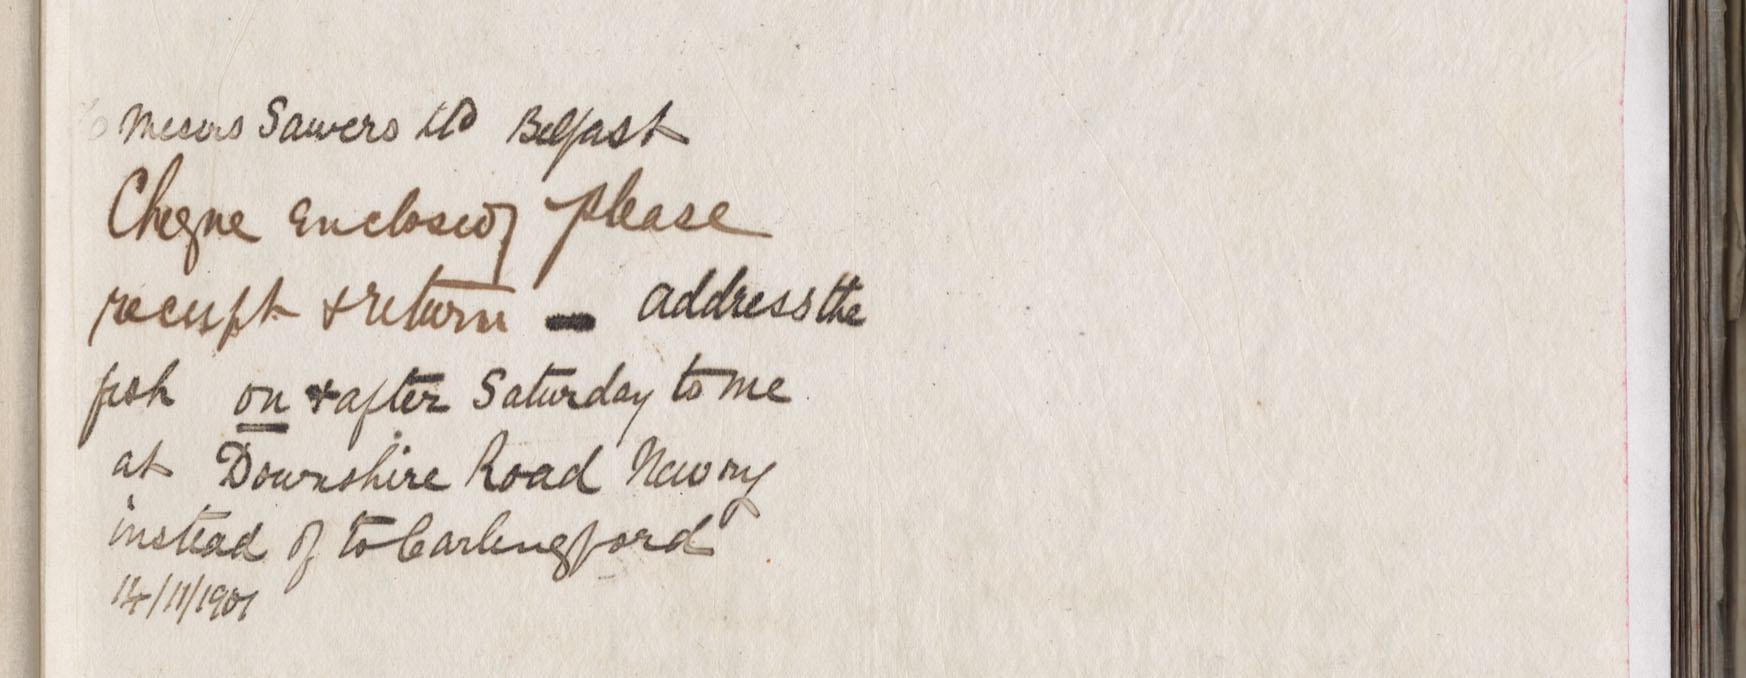 To Messrs Sawers Ltd Belfast
Cheque enclosed please
receipt & return – address the
fish on & after Saturday to me
at Downshire Road Newry
instead of to Carlingford
14/11/1901